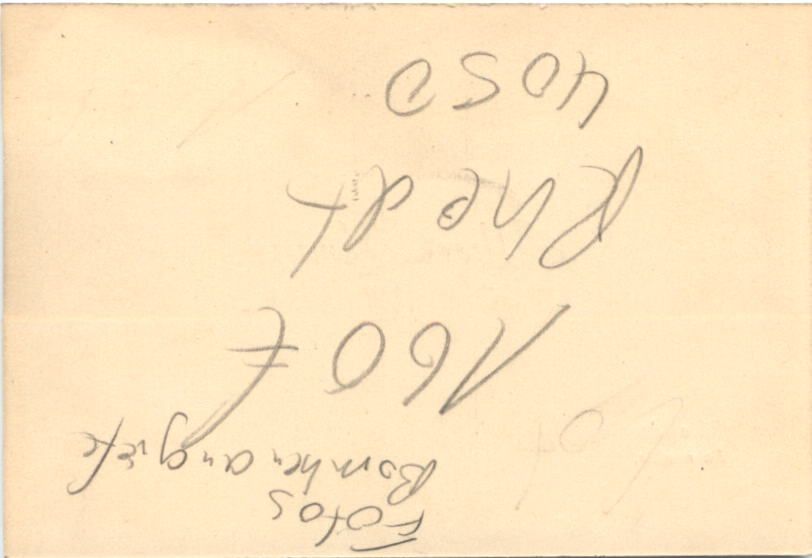 Fotos
Bombenangrife
160 F
Rhedt
4050